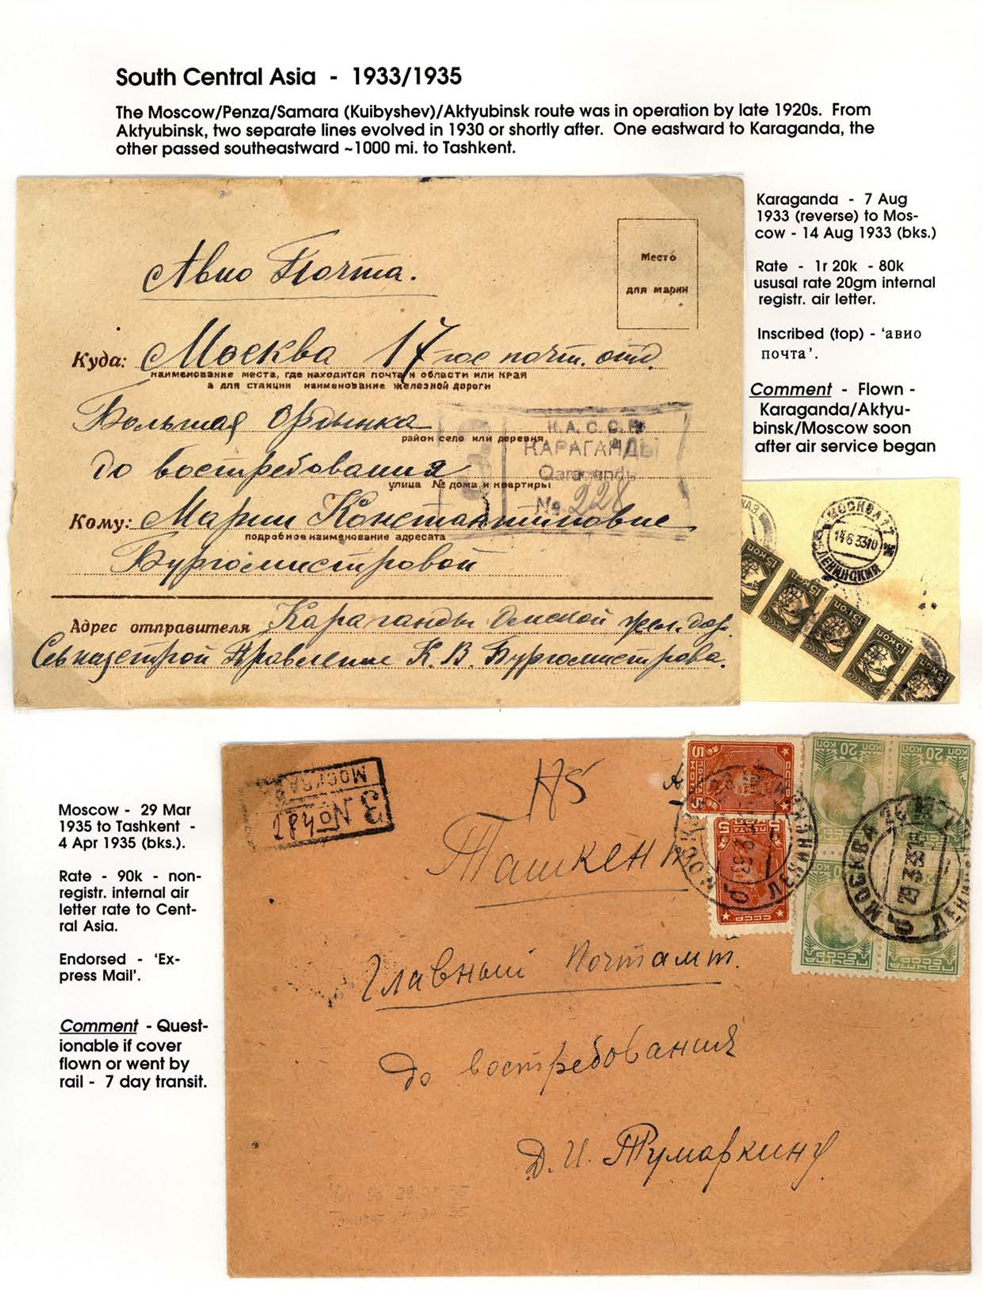 South Central Asia - 1933/1935
The Moscow/Penza/Samara (Kuibyshev)/Aktyubinsk route was in operation by late 1920s. From
Aktyubinsk, two separate lines evolved in 1930 or shortly after. One eastward to Karaganda, the
other passed southeastward ~1000 mi. to Tashkent.
Karaganda - 7 Aug
1933 (reverse) to Mos-
cow - 14 Aug 1933 (bks.)
Rate - 1r 20k - 80k
ususal rate 20gm internal
registr. air letter.
Inscribed (top) - 'авио
почта'.
Comment - Flown -
Karaganda/Aktyu-
binsk/Moscow soon
after air service began
Авио Почта.
Место
для марки
Куда: Москва 17 гос почт. отд.
наименование места, где находится почта, и области или края
а для станции наименование железной дороги
Большая Ордынка
район село или деревня
до востребования
улица № дома и квартиры
Кому: Марии Константиновне
подробное наименование адресата
Бургомистровой
Адрес отправителя Караганды Омской жел. дор.
Севказстрой Правление К. В. Бургомистрова.
К.А.С.С.Р.
КАРАГАНДЫ
Qaraƣandь
№ 228
З
МОСКВА 17
14 6 33 10
ЛЕНИНСКИЙ
15 КОП
15 КОП
15 КОП
15 КОП
Moscow - 29 Mar
1935 to Tashkent -
4 Apr 1935 (bks.).
Rate - 90k - non-
registr. internal air
letter rate to Cent-
ral Asia.
Endorsed - 'Ex-
press Mail'.
Comment - Quest-
ionable if cover
flown or went by
rail - 7 day transit.
МОСКВА
З №
Ташкент
Главный Почтамт.
до востребования
Д. И. Тумаркину
5 ПОЧТА
СССР
20 КОП
20 КОП
МОСКВА